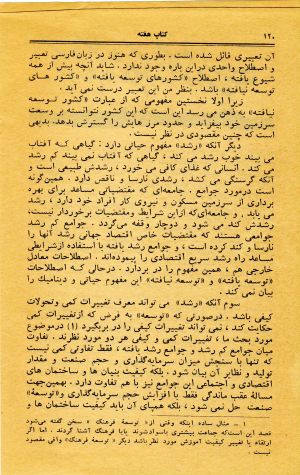 ۱۲۰ کتاب هفته
آن تعبیری قائل شده است . بطوری که هنوز در زبان فارسی تعبیر
و اصطلاح واحدی دراین باره وجود ندارد . شاید آنچه بیش از همه
شیوع یافته ، اصطلاح «کشورهای توسعه یافته» و «کشور های
توسعه نیافته» باشد . بنظر من این تعبیر درست نمی آید .
زیرا اولا نخستین مفهومی که از عبارت «کشور توسعه
نیافته» به ذهن می رسد این است که این کشور نتوانسته بر وسعت
سرزمین خود بیفزاید و حدود مرز هایش را گسترش بدهد. بدیهی
است که چنین مقصودی در نظر نیست .
دیگر آنکه «رشد» مفهوم حیاتی دارد : گیاهی کـه آفتاب
می بیند خوب رشد می کند ، گیاهی که آفتاب نمی بیند کم رشد
می کند . انسانی که غذای کافی می خورد ، رشدش طبیعی است و
آنکه گرسنگی می کشد ، رشدی نارسا و ناقص دارد . همین‌گونه
است درمورد جوامع . جامعه‌ای که مقتضیاتی مساعد برای بهره
برداری از سرزمین مسکون و نیروی کار افراد خود دارد ، رشد
می یابد . و جامعه‌ای‌که ازاین شرایط ومقتضیات برخوردار نیست،
رشدش کند می شود و دچار وقفه می‌گردد . جوامع کم رشد
جوامعی هستند که مقتضیات خاص اقتصاد جهانی رشد آنها را
نارسا و کند کرده است ، و جوامع رشد یافته با استفاده ازشرایطی
مساعد راه رشد سریع اقتصادی را پیموده‌اند . اصطلاحات معادل
خارجی هم ، همین مفهوم را در بردارد . درحالی کـه اصطلاحات
«توسعه یافته» و «توسعه نیافته» این مفهوم حیاتی و دینامیك را
بیان نمی کند .
سوم آنکه «رشد» می تواند معرف تغییرات کمی وتحولات
کیفی باشد . درصورتی که «توسعه» به فرض که ازتغییرات کمی
حکایت کند ، نمی تواند تغییرات کیفی را در بربگیرد (۱) درموضوع
مورد بحث ما ، تغییرات کمی و کیفی هر دو مورد نظرند . تفاوت
میان جوامع کم رشد و جوامع رشد یافته ، فقط تفاوتی کمی نیست
که تنها با سنجش میزان سرمایه‌گذاری و حجم صنعت و مقدار
تولید و نظایر آن بیان شود . بلکه کیفیت بنیان ها و ساختمان های
اقتصادی و اجتماعی این جوامع نیز با هم تفاوت دارد . بهمین‌جهت
مسألهٔ عقب ماندگی فقط با افزایش حجم سرمایه‌گذاری و«توسعهٔ»
صنعت حل نمی شود ، بلکه همپای آن باید کیفیت ساختمان ها و
۱ — مثال ساده اینکه وقتی از» توسعهٔ فرهنگ « سخن گفته می‌شود
قصد این است‌که جماعت بیشتری باسواد شوند یابا فرهنگ آشنا گردند . اما اگر
ارتقاء یا تغییر کیفیت آموزش مورد نظرباشد دیگر «توسعهٔ فرهنگ» وافی مقصود
نیست .